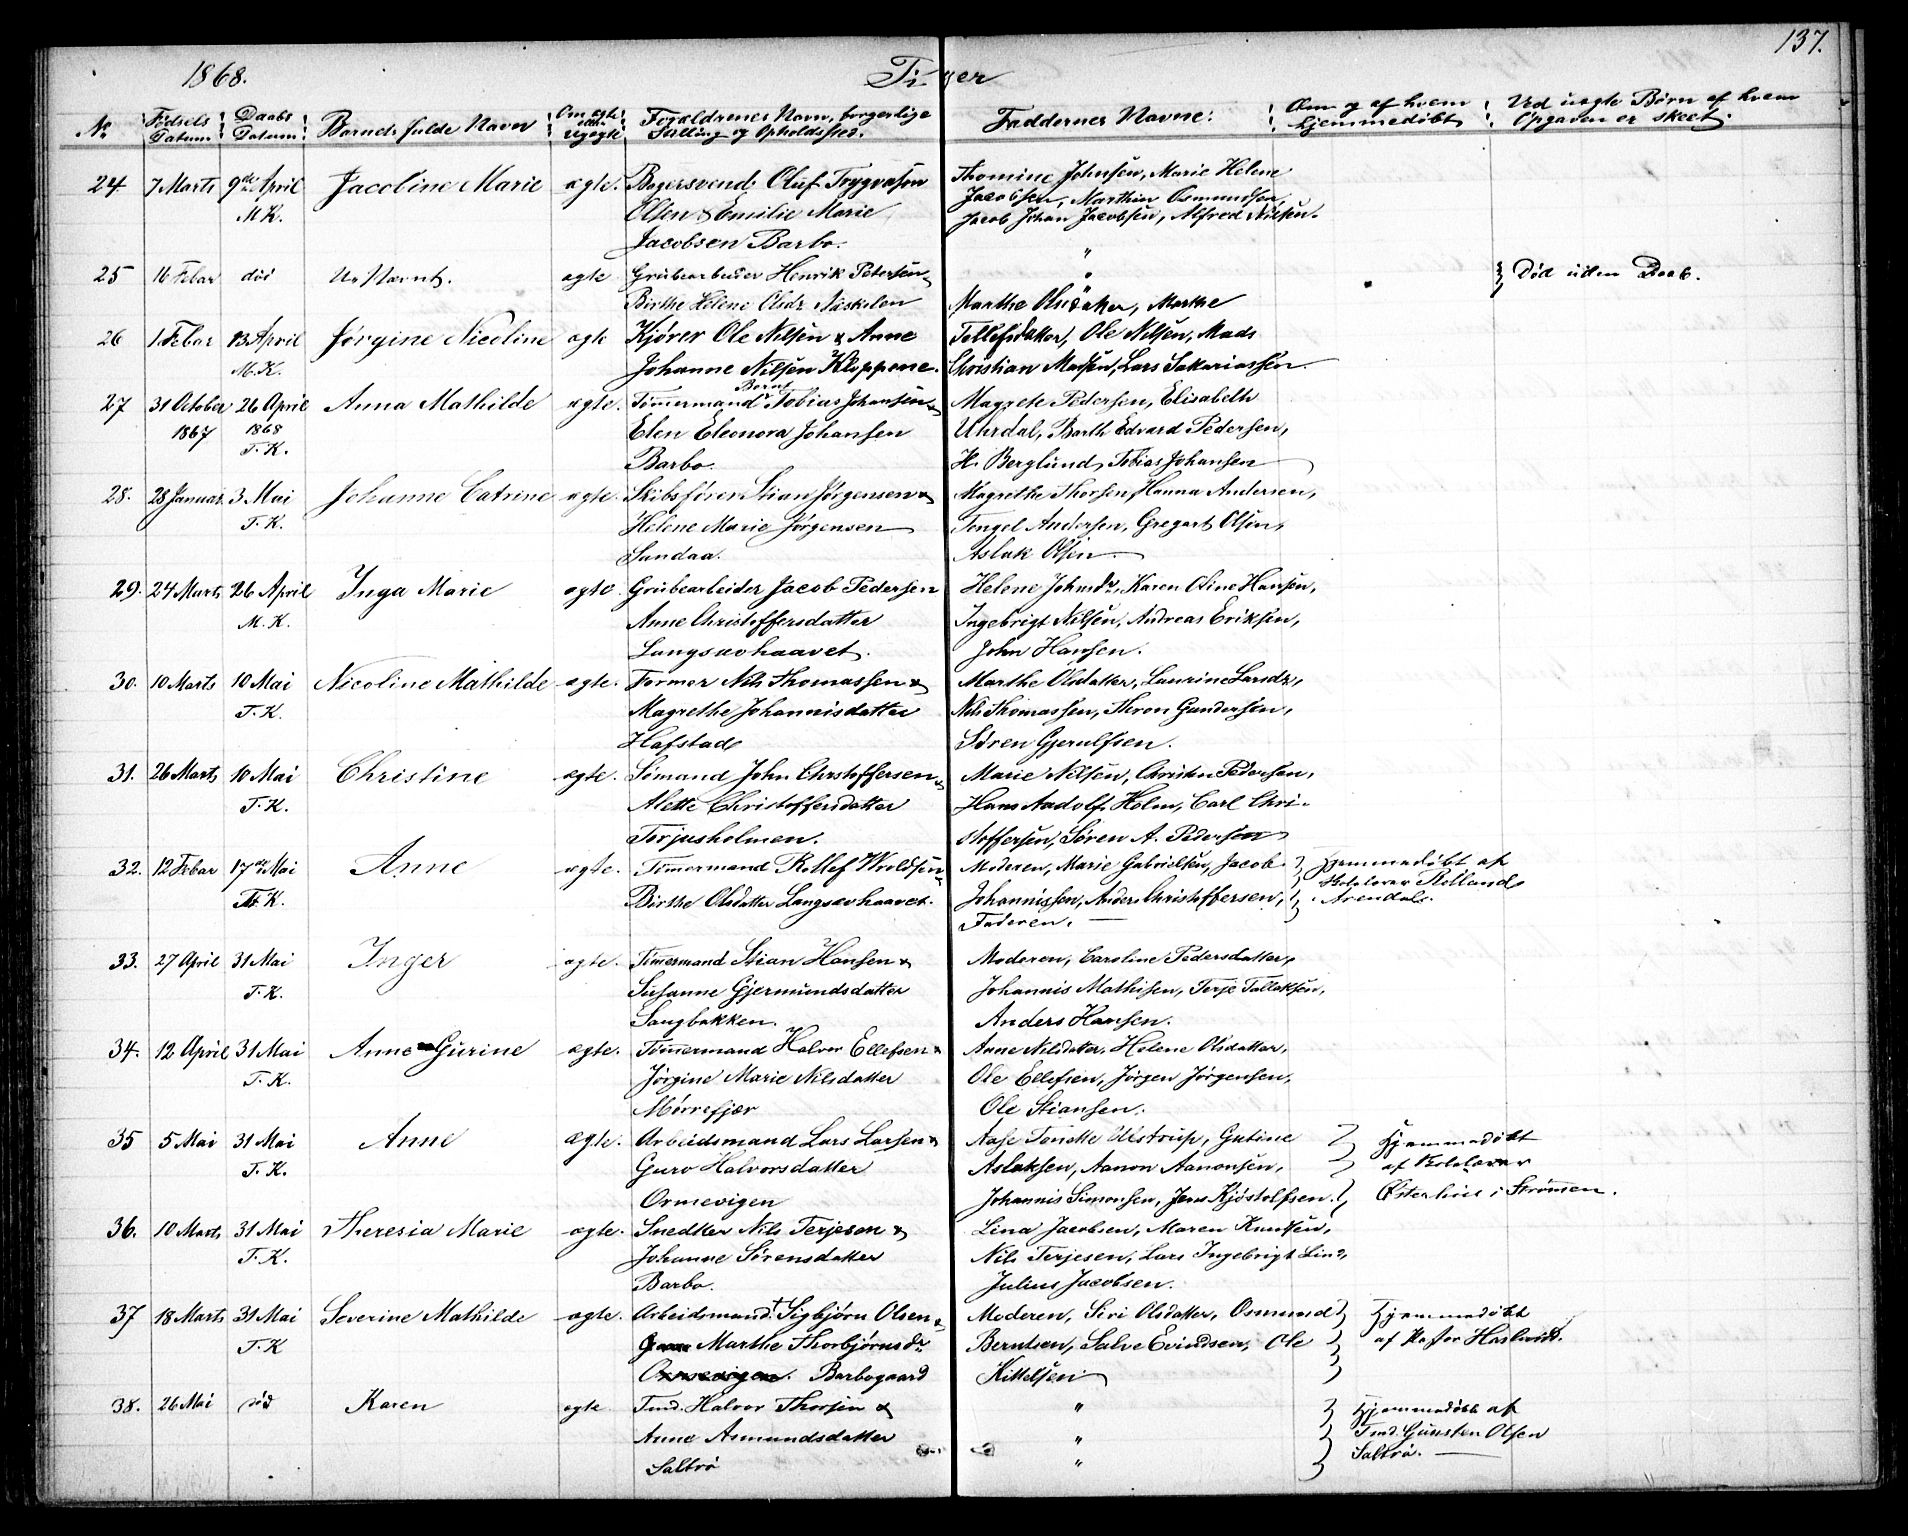 137.
1868.
Piger
No
Fødsels Datum
Daabs Datum
Barnets fulde Navn
Om ægte eller uægte
Forældrenes Navn, borgerlige Stilling og Opholdssted.
Faddernes Navne.
Om og af hvem hjemmedøbt
Ved uægte Børn af hvem Opgaven er skeet.
24. 7 Marts 9de April Jacoline Marie ægte. Bagersvend Oluf Trygvason Thomine Johnsen, Marie Helene
M. K. Olsen & Emilie Marie Jacobsen, Marthin Osmundsen,
Jacobsen Barbo. Jacob Johan Jacobsen, Alfred Nilsen.
"
25 16 Febar død Unævnt. ægte Grubearbeider Henrik Petersen " Død uden Daab.
Birthe Helene Olsdr Næskilen Marthe Olsdatter, Marthe
26 1. Febar 13 April Jørgine Nicoline ægte Kjører Ole Nilsen & Anne Tellefsdatter, Ole Nilsen, Mads
M. K. Johanne Nilsen Kloppene. Christian Madsen, Lars Sakariassen.
27 31 October 26 April Anna Mathilde ægte. Tømermand Bernt Tobias Johansen & Magrete Pedersen, Elisabeth
1867 1868 Elen Eleonora Johansen Uhrdal, Barth Edvard Pedersen,
T. K. Barbo. H. Berglund, Tobias Johansen
28. 28 Januar 3. Mai Johanne Catrine ægte Skibsfører Stian Jørgensen & Magrethe Thorsen, Hanna Andersen,
T. K. Helene Marie Jørgensen Tengel Andersen, Gregart Olsen,
Sandaa. Aslak Olsen
29. 24 Marts 26 April Inga Marie ægte. Grubearbeider Jacob Pedersen Helene Johnsdr, Karen Oline Hansen,
M. K. Anne Christoffersdatter Ingebrigt Nilsen, Andreas Eriksen,
Langsævhaavet. John Hansen.
30. 10 Marts 10 Mai Nicoline Mathilde ægte. Former Nils Thomassen & Marthe Olsdatter, Laurine Larsdr,
T. K. Magrethe Johannisdatter Nils Thomassen, Thron Gundersen,
Hafstad Søren Gjerulfsen.
31. 26 Marts 10 Mai Christine ægte. Sømand John Christoffersen & Marie Nilsen, Christen Pedersen,
T. K. Alette Christoffersdatter Hans Aadolf Holm, Carl Chri-
Torjusholmen. stoffersen, Søren A. Pedersen
32. 12 Febar 17de Mai Anne ægte. Tømermand Rollef Wroldsen Moderen, Marie Gabrielsen, Jacob Hjemmedøbt af
T. K. Birthe Olsdatter Langsævhaavet. Johannissen, Anders Christoffersen, Skolelærer Rolland
Faderen. Arendal.
33. 27 April 31 Mai Inger ægte. Tømermand Stian Hansen & Moderen, Caroline Pedersdatter,
T. K. Susanne Gjermundsdatter Johannis Mathisen, Terje Tallaksen,
Sangbakken. Anders Hansen.
34. 12 April 31 Mai Anne Gurine ægte. Tømmermand Halvor Ellefsen & Anne Nilsdatter, Helene Olsdatter,
T. K. Jørgine Marie Nilsdatter Ole Ellefsen, Jørgen Jørgensen,
Mørrefjær Ole Stiansen.
35 5 Mai 31 Mai Anne ægte. Arbeidsmand Lars Larsen & Aase Tonette Ulstrup, Gutine Hjemmedøbt
T. K. Guro Halvorsdatter Aslaksen, Aanon Aanonsen, af Skolelærer
Ormevigen Johannis Simonsen, Jens Kjøstolfsen. Østerhus i Strømen.
36. 10 Marts 31 Mai Theresia Marie ægte. Snedker Nils Terjesen & Lina Jacobsen, Maren Knutsen,
T. K. Johanne Sørensdatter Nils Terjesen, Lars Ingebrigt Lind,
Barbo. Julius Jacobsen.
37 18 Marts 31 Mai Severine Mathilde ægte. Arbeidsmand † Sigbjørn Olsen & Moderen, Siri Olsdatter, Osmund Hjemmedøbt
T. K Marthe Thorbjørnsdr Berntsen, Salve Evindsen, Ole af Pastor Harlund.
Ormevigen. Barbogaard Kittelsen
38. 26 Mai død Karen ægte Tmd. Halvor Thorsen & " Hjemmedøbt af
Anne Asmundsdatter " Tmd. Gunsten Olsen
Saltrø " Saltrø.